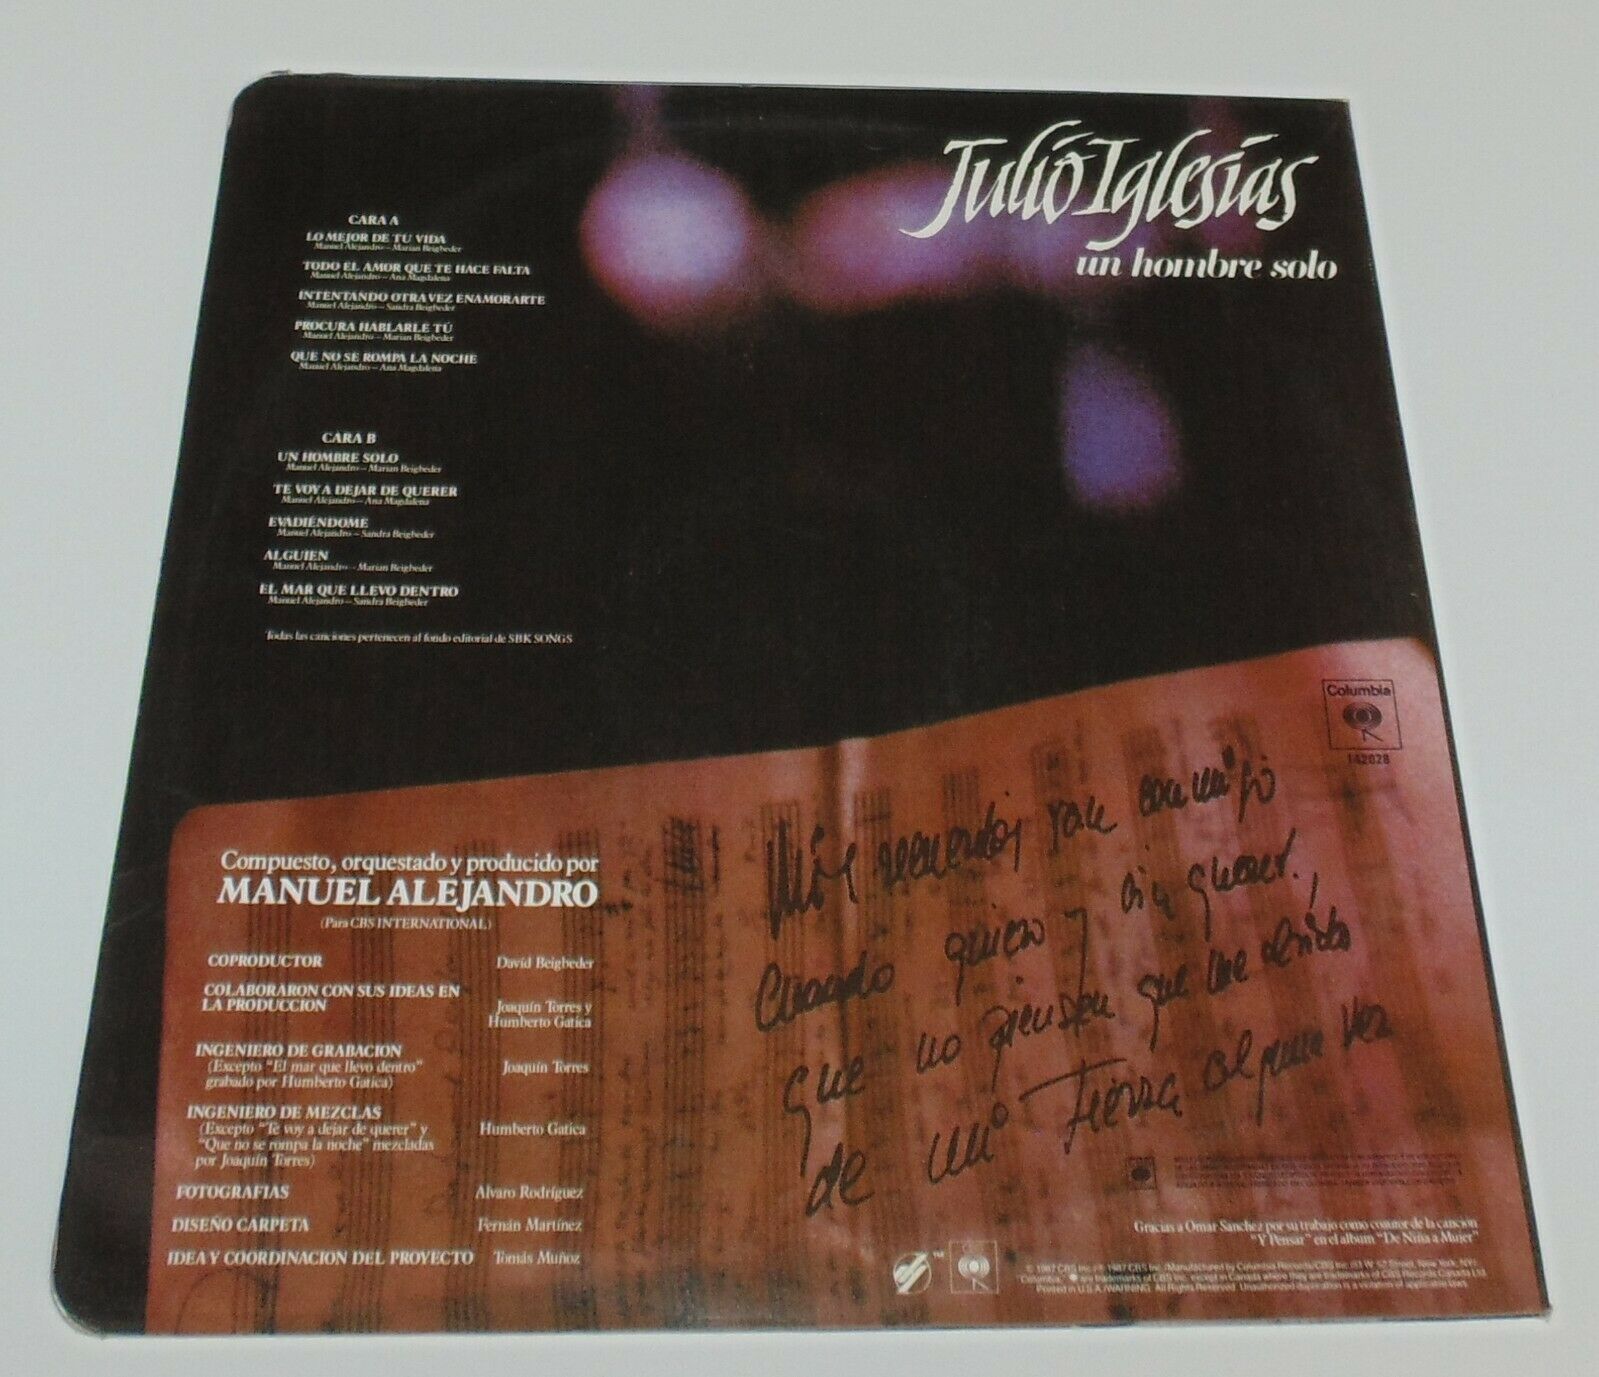 Julio Iglesias
un hombre solo
CARA A
LO MEJOR DE TU VIDA
Manuel Alejandro — Marian Beigbeder
TODO EL AMOR QUE TE HACE FALTA
Manuel Alejandro — Ana Magdalena
INTENTANDO OTRA VEZ ENAMORARTE
Manuel Alejandro — Sandra Beigbeder
PROCURA HABLARLE TÚ
Manuel Alejandro — Marian Beigbeder
QUE NO SE ROMPA LA NOCHE
Manuel Alejandro — Ana Magdalena
CARA B
UN HOMBRE SOLO
Manuel Alejandro — Marian Beigbeder
TE VOY A DEJAR DE QUERER
Manuel Alejandro — Ana Magdalena
EVADIÉNDOME
Manuel Alejandro — Sandra Beigbeder
ALGUIEN
Manuel Alejandro — Marian Beigbeder
EL MAR QUE LLEVO DENTRO
Manuel Alejandro — Sandra Beigbeder
Todas las canciones pertenecen al fondo editorial de SBK SONGS
Columbia
142028
Compuesto, orquestado y producido por
MANUEL ALEJANDRO
(Para CBS INTERNATIONAL)
COPRODUCTOR David Beigbeder
COLABORARON CON SUS IDEAS EN
LA PRODUCCION Joaquín Torres y
Humberto Gatica
INGENIERO DE GRABACION
(Excepto "El mar que llevo dentro" Joaquín Torres
grabado por Humberto Gatica)
INGENIERO DE MEZCLAS
(Excepto "Te voy a dejar de querer" y Humberto Gatica
"Que no se rompa la noche" mezcladas
por Joaquín Torres)
FOTOGRAFIAS Alvaro Rodríguez
DISEÑO CARPETA Fernán Martínez
IDEA Y COORDINACION DEL PROYECTO Tomás Muñoz
Mis recuerdos van conmigo
Cuando quiero y sin querer,
que no piensen que me olvido
de mi tierra alguna vez
Gracias a Omar Sanchez por su trabajo como coautor de la canción
"Y Pensar" en el album "De Niña a Mujer"
TM
© 1987 CBS Inc./℗ 1987 CBS Inc./Manufactured by Columbia Records/CBS Inc./51 W. 52 Street, New York, NY/
"Columbia," are trademarks of CBS Inc. except in Canada where they are trademarks of CBS Records Canada Ltd.
Printed in U.S.A./WARNING: All Rights Reserved. Unauthorized duplication is a violation of applicable laws.